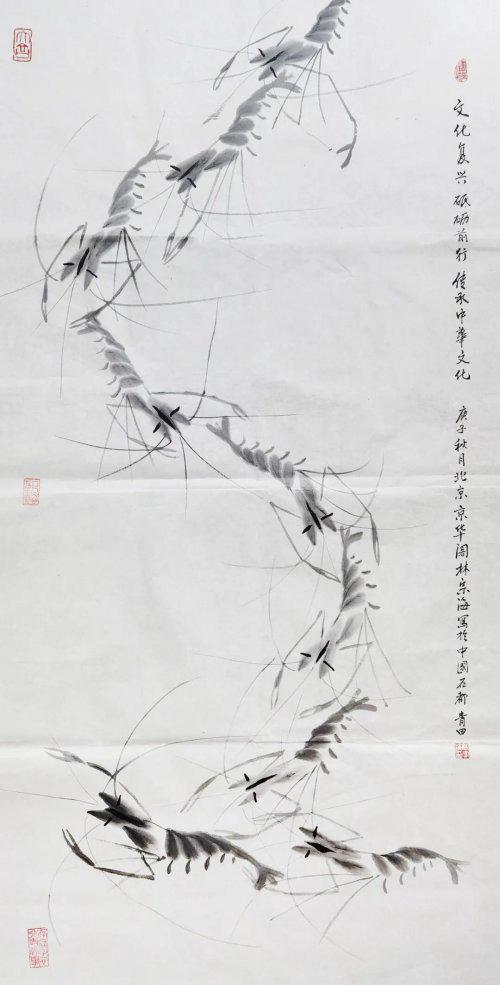 文化复兴 砥砺前行 传承中华文化 庚子秋月北京京华阁林宗海写於中国石都青田